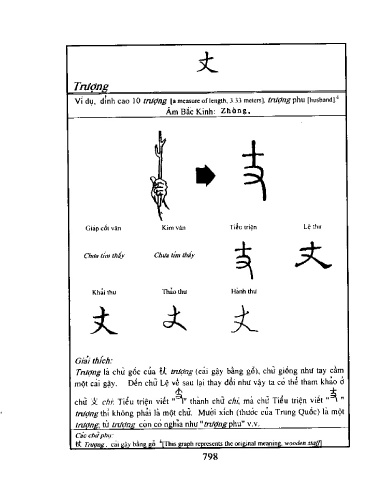 丈
Trượng
Ví dụ, đỉnh cao 10 trượng [a measure of length, 3.33 meters], trượng phu [husband].
Âm Bắc Kinh: Zhàng.
Giáp cốt văn Kim văn Tiểu triện Lệ thư
Chưa tìm thấy Chưa tìm thấy 丈 丈
Khải thư Thảo thư Hành thư
丈 丈 丈
Giải thích:
Trượng là chữ gốc của 杖 trượng (cái gậy bằng gỗ), chữ giống như tay cầm
một cái gậy. Đến chữ Lệ về sau lại thay đổi như vậy ta có thể tham khảo ở
chữ 支 chi. Tiểu triện viết " " thành chữ chi, mà chữ Tiểu triện viết " "
trượng thì không phải là một chữ. Mười xích (thước của Trung Quốc) là một
trượng, từ trượng còn có nghĩa như "trượng phu" v.v.
Các chữ phụ:
杖 Trượng, cái gậy bằng gỗ [This graph represents the original meaning, wooden staff]
798